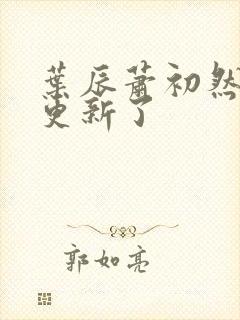 葉辰蕭初然
更新了
郭如亮